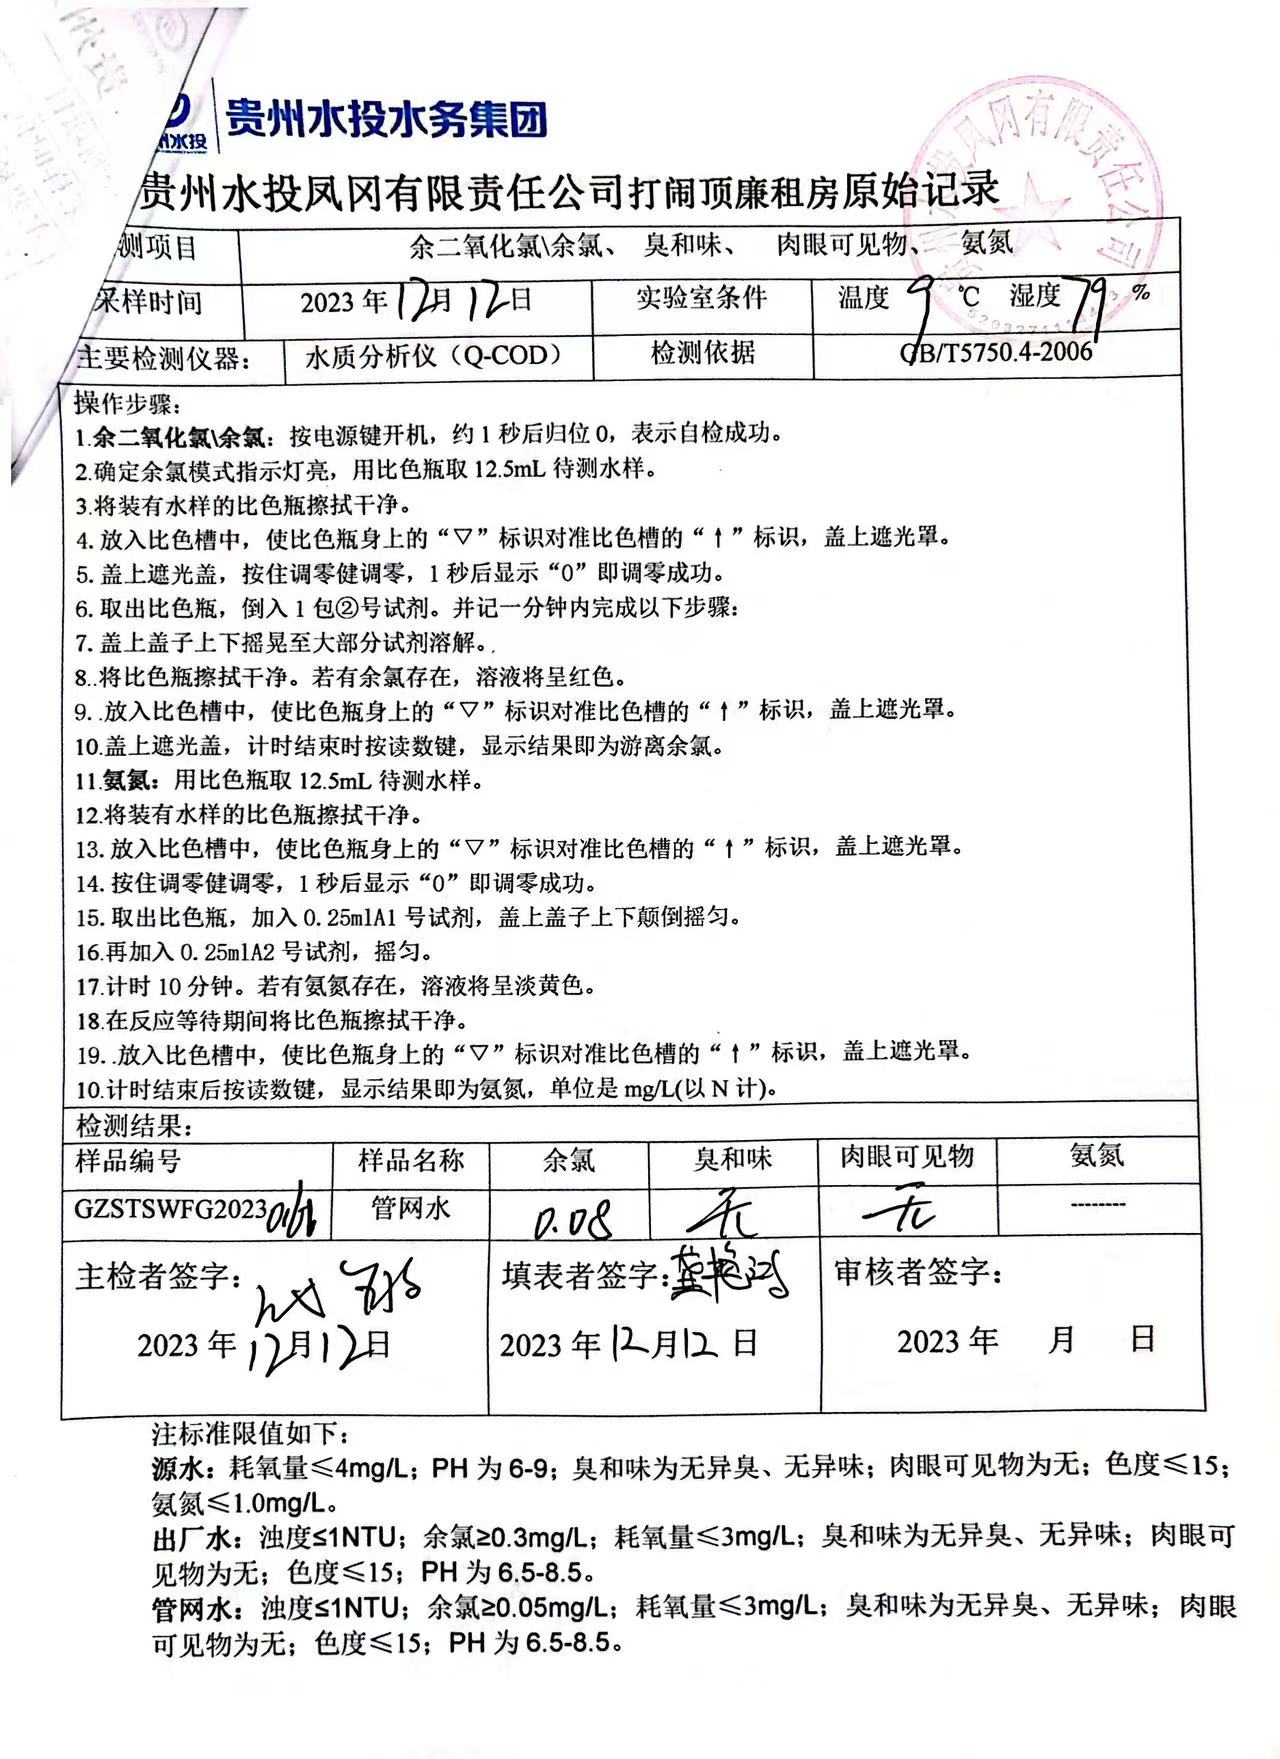 州水投
贵州水投水务集团
贵州水投凤冈有限责任公司打闹顶廉租房原始记录
测项目 余二氧化氯\余氯、 臭和味、 肉眼可见物、 氨氮
采样时间 2023年12月12日 实验室条件 温度 9 ℃ 湿度 79 %
主要检测仪器: 水质分析仪(Q-COD) 检测依据 GB/T5750.4-2006
操作步骤:
1.余二氧化氯\余氯:按电源键开机,约1秒后归位0,表示自检成功。
2.确定余氯模式指示灯亮,用比色瓶取12.5mL待测水样。
3.将装有水样的比色瓶擦拭干净。
4.放入比色槽中,使比色瓶身上的“▽”标识对准比色槽的“↑”标识,盖上遮光罩。
5.盖上遮光盖,按住调零健调零,1秒后显示“0”即调零成功。
6.取出比色瓶,倒入1包②号试剂。并记一分钟内完成以下步骤:
7.盖上盖子上下摇晃至大部分试剂溶解。
8..将比色瓶擦拭干净。若有余氯存在,溶液将呈红色。
9. .放入比色槽中,使比色瓶身上的“▽”标识对准比色槽的“↑”标识,盖上遮光罩。
10.盖上遮光盖,计时结束时按读数键,显示结果即为游离余氯。
11.氨氮:用比色瓶取12.5mL待测水样。
12.将装有水样的比色瓶擦拭干净。
13.放入比色槽中,使比色瓶身上的“▽”标识对准比色槽的“↑”标识,盖上遮光罩。
14.按住调零健调零,1秒后显示“0”即调零成功。
15.取出比色瓶,加入0.25mlA1号试剂,盖上盖子上下颠倒摇匀。
16.再加入0.25mlA2号试剂,摇匀。
17.计时10分钟。若有氨氮存在,溶液将呈淡黄色。
18.在反应等待期间将比色瓶擦拭干净。
19. .放入比色槽中,使比色瓶身上的“▽”标识对准比色槽的“↑”标识,盖上遮光罩。
10.计时结束后按读数键,显示结果即为氨氮,单位是mg/L(以N计)。
检测结果:
样品编号 样品名称 余氯 臭和味 肉眼可见物 氨氮
GZSTSWFG2023 管网水 0.08 无 无 --------
主检者签字: 填表者签字: 审核者签字:
2023年12月12日 2023年12月12日 2023年 月 日
注标准限值如下:
源水:耗氧量≤4mg/L;PH为6-9;臭和味为无异臭、无异味;肉眼可见物为无;色度≤15;
氨氮≤1.0mg/L。
出厂水:浊度≤1NTU;余氯≥0.3mg/L;耗氧量≤3mg/L;臭和味为无异臭、无异味;肉眼可
见物为无;色度≤15;PH为6.5-8.5。
管网水:浊度≤1NTU;余氯≥0.05mg/L;耗氧量≤3mg/L;臭和味为无异臭、无异味;肉眼
可见物为无;色度≤15;PH为6.5-8.5。